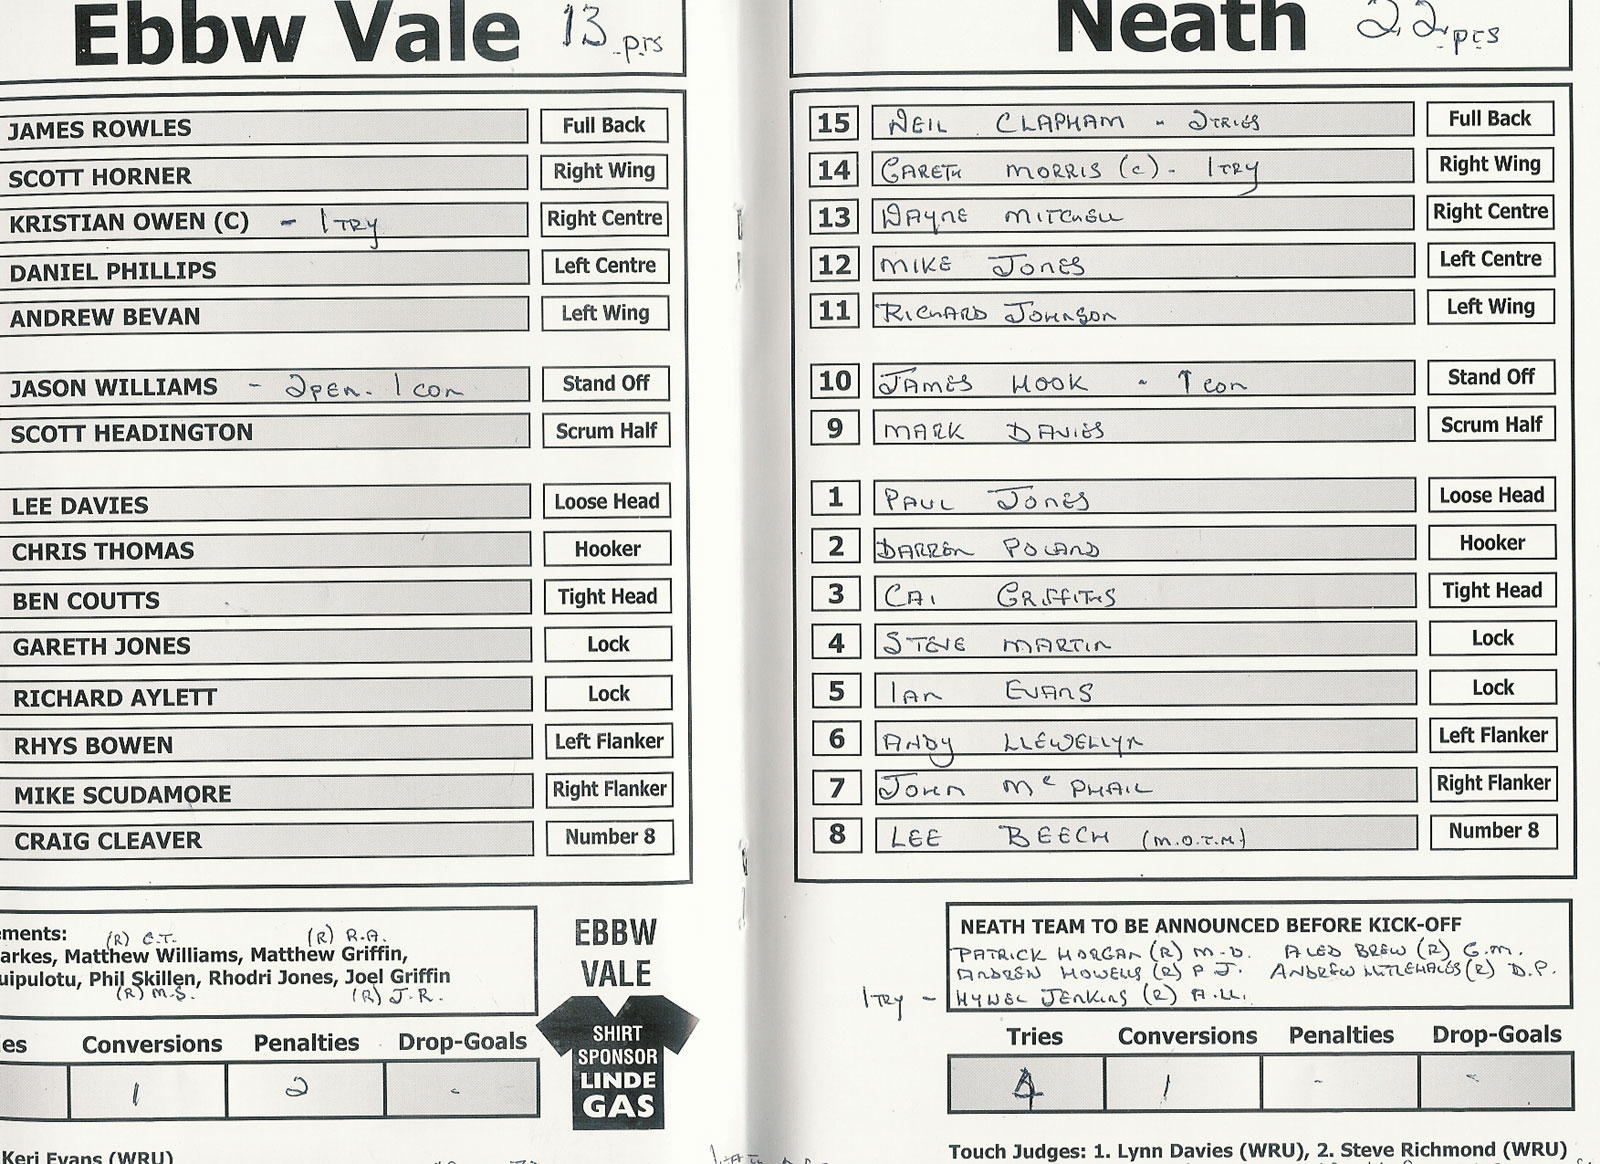 Ebbw Vale 13 pts
JAMES ROWLES Full Back
SCOTT HORNER Right Wing
KRISTIAN OWEN (C) - 1 TRY Right Centre
DANIEL PHILLIPS Left Centre
ANDREW BEVAN Left Wing
JASON WILLIAMS - 2 PEN. 1 CON Stand Off
SCOTT HEADINGTON Scrum Half
LEE DAVIES Loose Head
CHRIS THOMAS Hooker
BEN COUTTS Tight Head
GARETH JONES Lock
RICHARD AYLETT Lock
RHYS BOWEN Left Flanker
MIKE SCUDAMORE Right Flanker
CRAIG CLEAVER Number 8
ements: (R) C.T. (R) R.A.
arkes, Matthew Williams, Matthew Griffin,
uipulotu, Phil Skillen, Rhodri Jones, Joel Griffin
(R) M.S. (R) J.R.
EBBW
VALE
SHIRT
SPONSOR
LINDE
GAS
es Conversions Penalties Drop-Goals
1 2 -
Keri Evans (WRU)
Neath 22 pts
15 NEIL CLAPHAM - 2 TRIES Full Back
14 GARETH MORRIS (C) - 1 TRY Right Wing
13 WAYNE MITCHELL Right Centre
12 MIKE JONES Left Centre
11 RICHARD JOHNSON Left Wing
10 JAMES HOOK - 1 CON Stand Off
9 MARK DAVIES Scrum Half
1 PAUL JONES Loose Head
2 DARREN POLAND Hooker
3 CAI GRIFFITHS Tight Head
4 STEVE MARTIN Lock
5 IAN EVANS Lock
6 ANDY LLEWELLYN Left Flanker
7 JOHN McPHAIL Right Flanker
8 LEE BEECH (M.O.T.M) Number 8
NEATH TEAM TO BE ANNOUNCED BEFORE KICK-OFF
PATRICK HORGAN (R) M.D. ALED BREW (R) G.M.
ANDREW HOWELLS (R) P.J. ANDREW LITTLEHALES (R) D.P.
1 TRY - HYWEL JENKINS (R) A.LL.
Tries Conversions Penalties Drop-Goals
4 1 - -
Touch Judges: 1. Lynn Davies (WRU), 2. Steve Richmond (WRU)